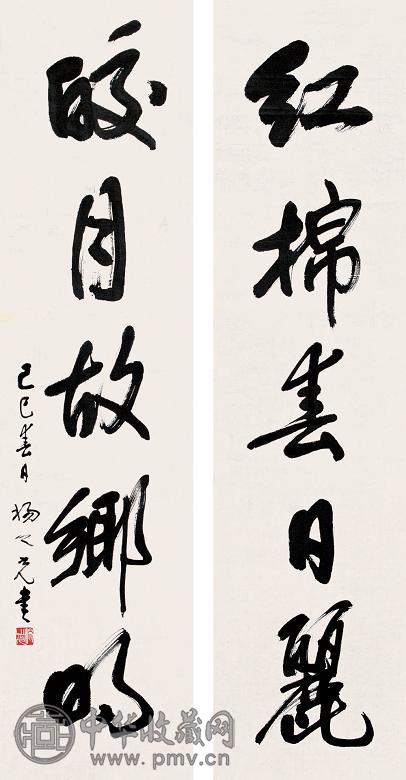 红棉春日麗
皎月故鄉明
己巳春日 杨之光書
中华收藏网
www.pmv.cn